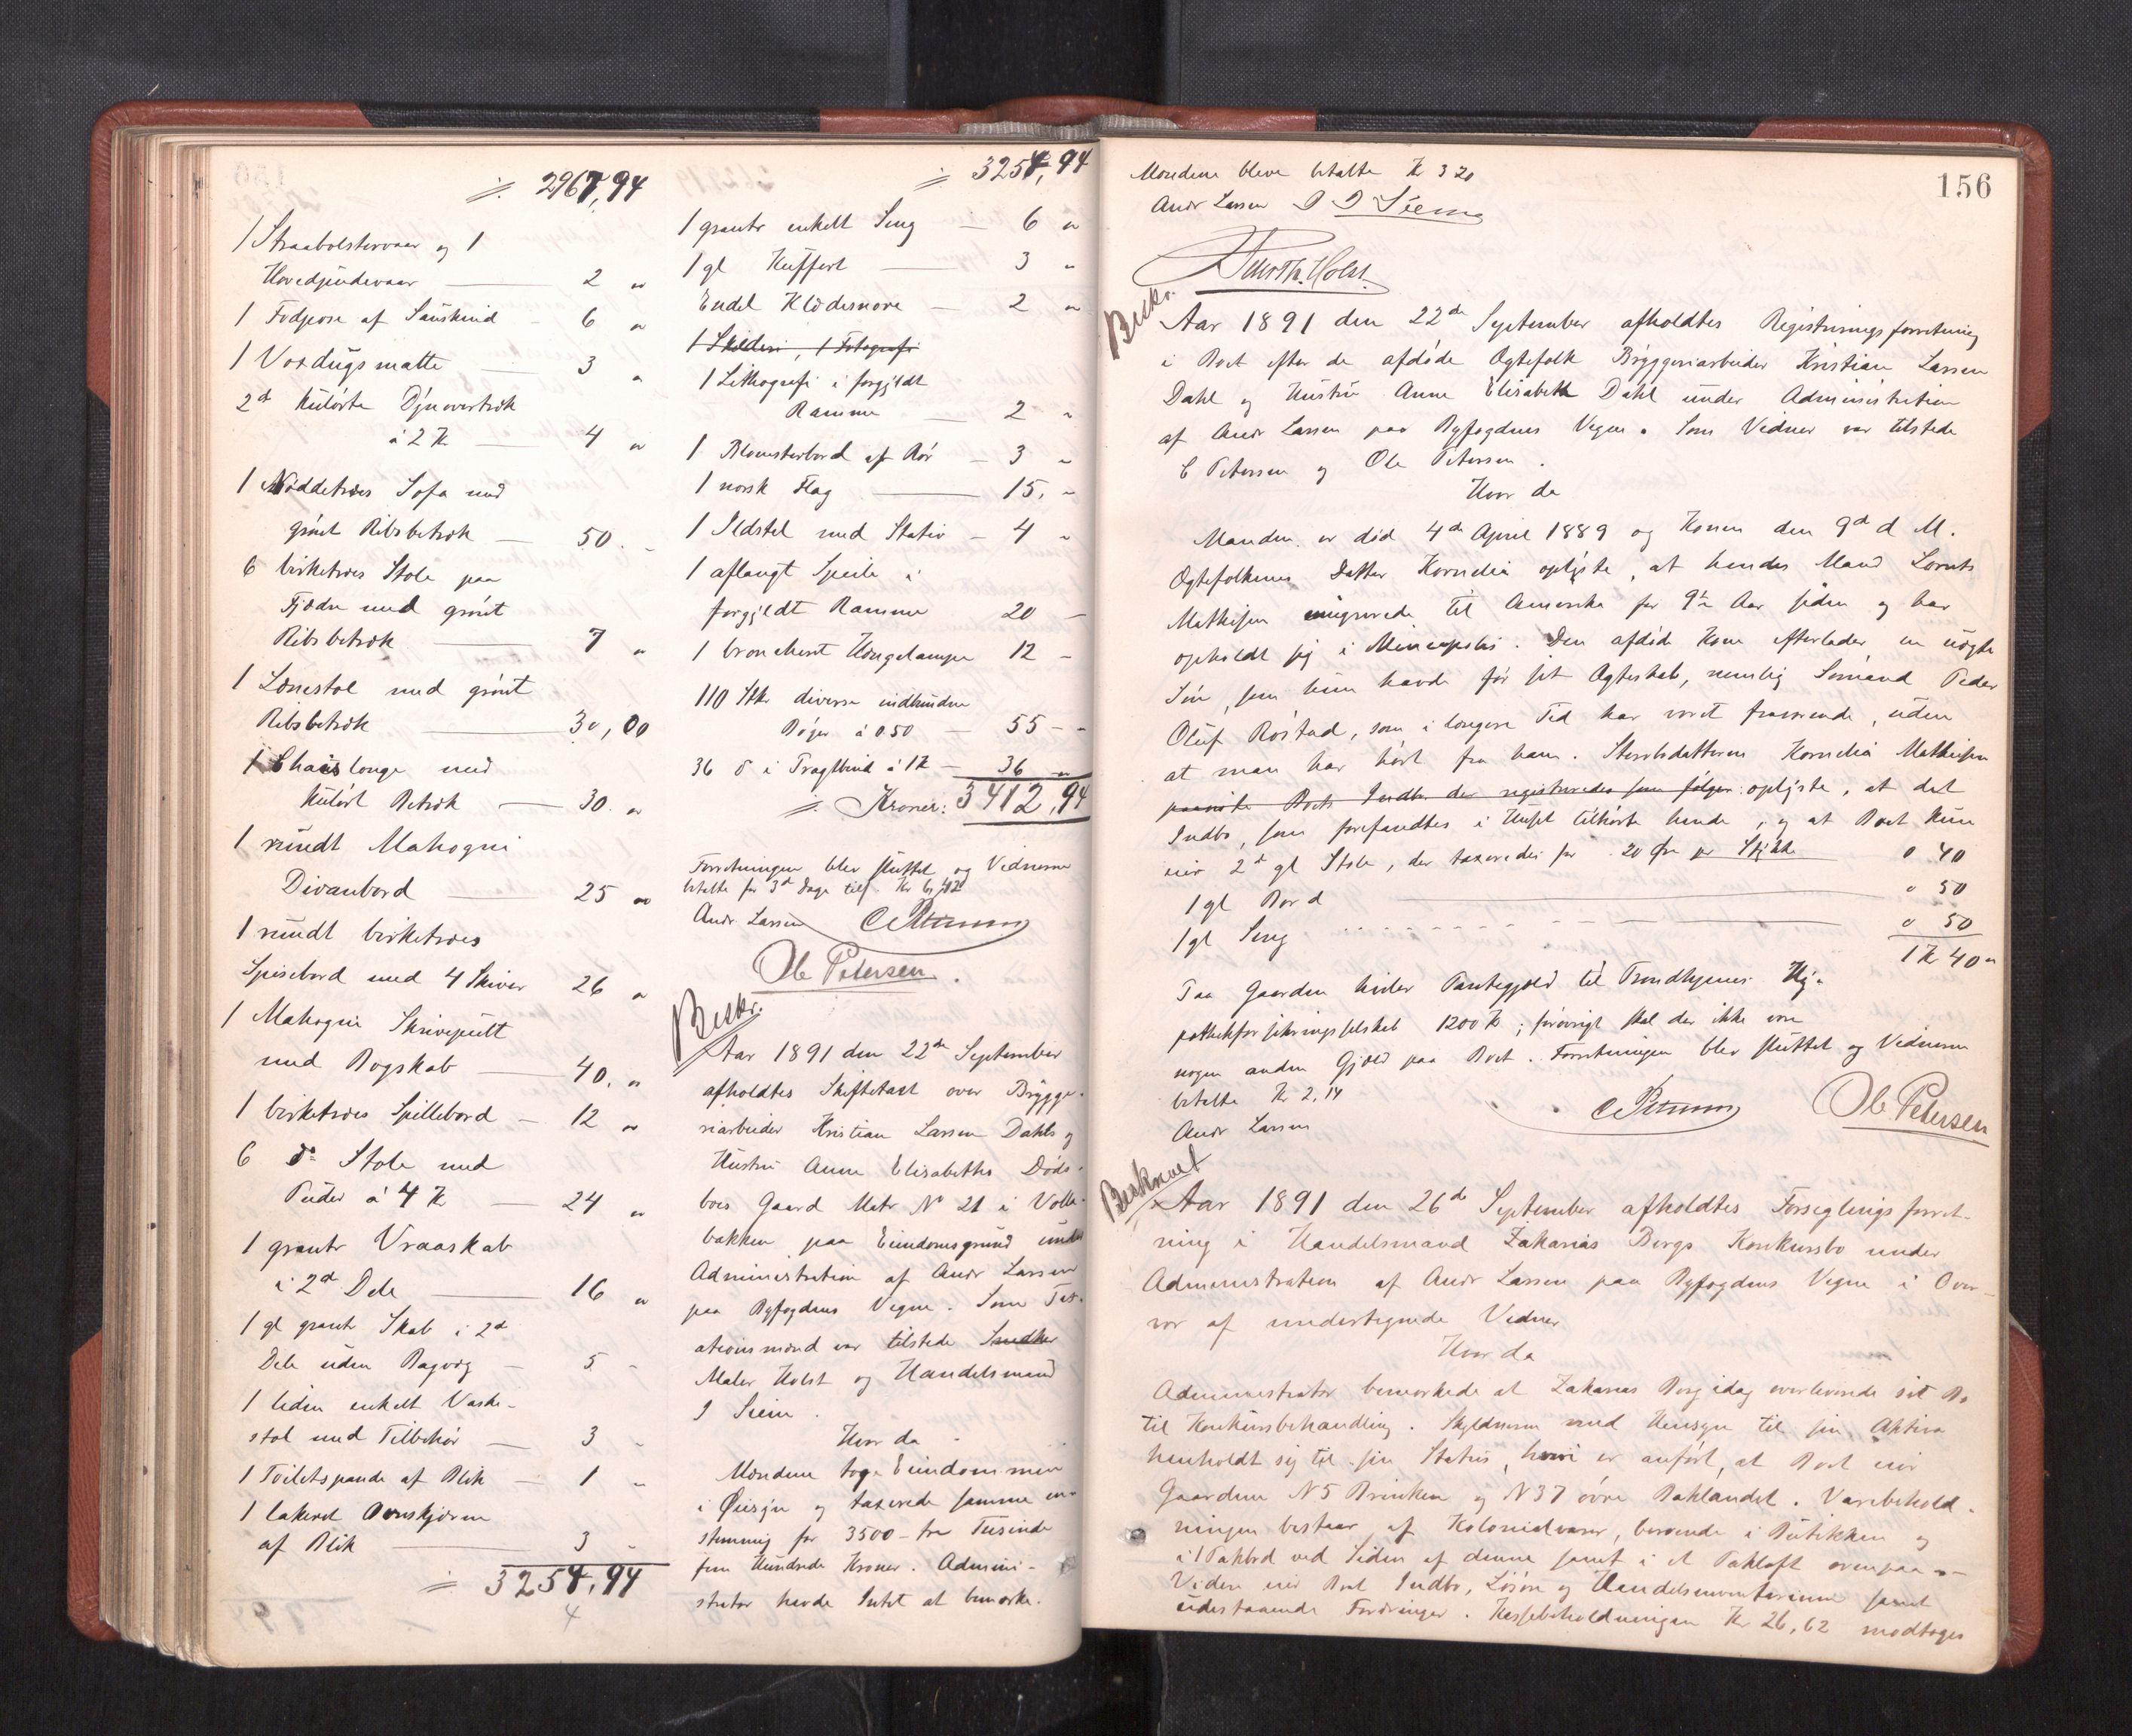 ⁒ 2967,94
1 Straabolstervaar og 1
Hovedpudevaar — 2 "
1 Fodpose af Sauskind - 6 "
1 Voxdugsmatte — 3 "
2de kulørte Dynovertræk
á 2 Kr — 4 "
1 Nøddetræes Sofa med
grønt Ribsbetræk — 50. -
6 birketræes Stole paa
Fjædre med grønt
Ribsbetræk — 7 "
1 Lænestol med grønt
Ribsbetræk — 30,00
1 Chaislonge med
kulørt Betræk — 30. "
1 rundt Mahogni
Divanbord — 25 "
1 rundt birketræes
Spisebord med 4 Skiver 26 "
1 Mahogni Skrivepult
med Bogskab — 40. "
1 birketræes Spillebord - 12 "
6 do Stole med
Puder á 4 Kr — 24 "
1 graatr Vraaskab
i 2de Dele — 16 "
1 gl graatr Skab i 2de
Dele uden Bagvæg — 5 -
1 liden enkelt Vaske-
stol med Tilbehør — 3 -
1 Toiletspande af Blik — 1 "
1 lakeret Ovnskjærm
af Blik — 3 -
⁒ 3254,94
4
⁒ 3254,94
1 graatr enkelt Seng — 6 "
1 gl Kuffert — 3 "
Endel Klædesnore — 2 "
1 Skilderi, 1 Fotografi
1 Lithografi i forgyldt
Ramme — 2 "
1 Blomsterbord af Rør — 3 "
1 norsk Flag — 15. "
1 Ildstel med Stativ — 4 "
1 aflangt Speile i
forgyldt Ramme 20 -
1 broncheret Hængelampe 12 -
110 Stkr diverse indbundne
Bøger á 0 50 — 55 - -
36 do i Pragtbind á 1 Kr — 36 "
⁒ Kroner: 3412,94
Forretningen blev sluttet og Vidnerne
betalte for 3de Dage tils. Kr
Andr. Lassen C Petersen
Ole Petersen.
Beskr.
Aar 1891 den 22de September
afholdtes Skiftetaxt over Brygge-
riarbeider Kristian Larsen Dahls og
Hustru Anne Elisabeths Døds-
boes Gaard Matr No 21 i Volla-
bakken paa Eiendomsgrund under
Administration af Andr Lassen
paa Byfogdens Vegne. Som Tax-
ationsmænd var tilstede Snedker
Maler Holst og Handelsmand
I Siem.
Hvor da
Mændene tog Eiendommen
i Øiesyn og taxerede samme en-
stemmig for 3500 - tre Tusinde
fem Hundrede Kroner. Admini-
strator havde Intet at bemærke.
156
Mændene bleve betalte Kr 3 20
Andr Lassen I D Siem
Holst.
Beskr.
Aar 1891 den 22de September afholdtes Registreringsforretning
i Boet efter de afdøde Ægtefolk Bryggeriarbeider Kristian Larsen
Dahl og Hustru Anne Elisabeth Dahl under Administration
af Andr Lassen paa Byfogdens Vegne. Som Vidner var tilstede
C Petersen og Ole Petersen.
Hvor da
Manden er død 4de April 1889 og Konen den 9de d M.
Ægtefolkenes Datter Kornelia oplyste, at hendes Mand Lornts
Mathisen emigrerede til Amerika for 9½ Aar siden og har
opholdt sig i Mineapolis. Den afdøde Kone efterlader en uægte
Søn, som hun havde før sit Ægteskab, nemlig Sømand Peder
Oluf Røstad, som i længere Tid har været fraværende, uden
at man har hørt fra ham. Stervbodatteren Kornelia Mathisen
paaviste Boets Indbo der registreredes som følger: oplyste, at det
Indbo, som forefandtes i Huset tilhørte hende, og at Boet kun
eier 2de gl Stole, der taxeredes for 20 Øre pr Stykke — 0 40
1 gl Bord — " 50
1 gl Seng — 0 50
1 Kr 40 "
Paa Gaarden hviler Pantegjæld til Trondhjems Hy-
pothekforsikringsselskab 1200 Kr; forøvrigt skal der ikke være
nogen anden Gjæld paa Boet. Forretningen blev sluttet og Vidnerne
betalte Kr 2,14
Andr Lassen C Petersen Ole Petersen
Beskrevet
Aar 1891 den 26de September afholdtes Forseglingsforret-
ning i Handelsmand Zakarias Bergs Konkursbo under
Administration af Andr Lassen paa Byfogdens Vegne i Over-
vær af undertegnede Vidner
Hvor da
Administrator bemærkede at Zakarias Berg idag overleverede sit Bo
til Konkursbehandling. Skyldneren med Hensyn til sin Aktiva
henholdt sig til sin Status, hvori er anført, at Boet eier
Gaardene N 5 Brinken og N 37 øvre Baklandet. Varebehold-
ningen bestaar af Kolonialvarer, beroende i Butikken og
i 1 Pakbod ved Siden af denne samt i et Pakloft ovenpaa -
Videre eier Boet Indbo, Løsøre og Handelsinventarium samt
udestaaende Fordringer. Kassebeholdningen Kr 26,62 modtoges